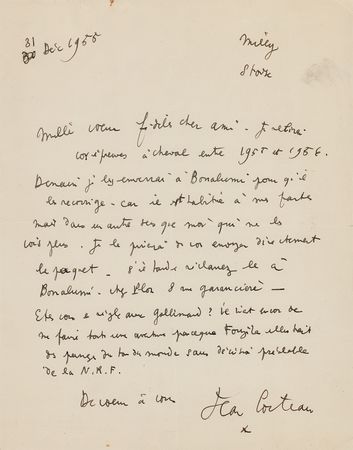 31
Déc 1955
Milly
S et Oise
Mille voeux fidèles cher ami. Je relirai
vos épreuves à cheval entre 1955 et 1956.
Demain je les enverrai à Bonalumi pour qu'il
les recorrige - car il est habitué à mes fautes
mais dans un autre sens que moi qui ne les
vois plus. Je le prierai de vous envoyer directement
le paquet - s'il tarde réclamez le à
Bonalumi. chez Plon 8 rue garancière -
Etes vous en règle avec Gallimard? Ils vient encore de
me faire toute une parceque
des pages du monde sans préalable
de la N.R.F.
De coeur à vous
Jean Cocteau